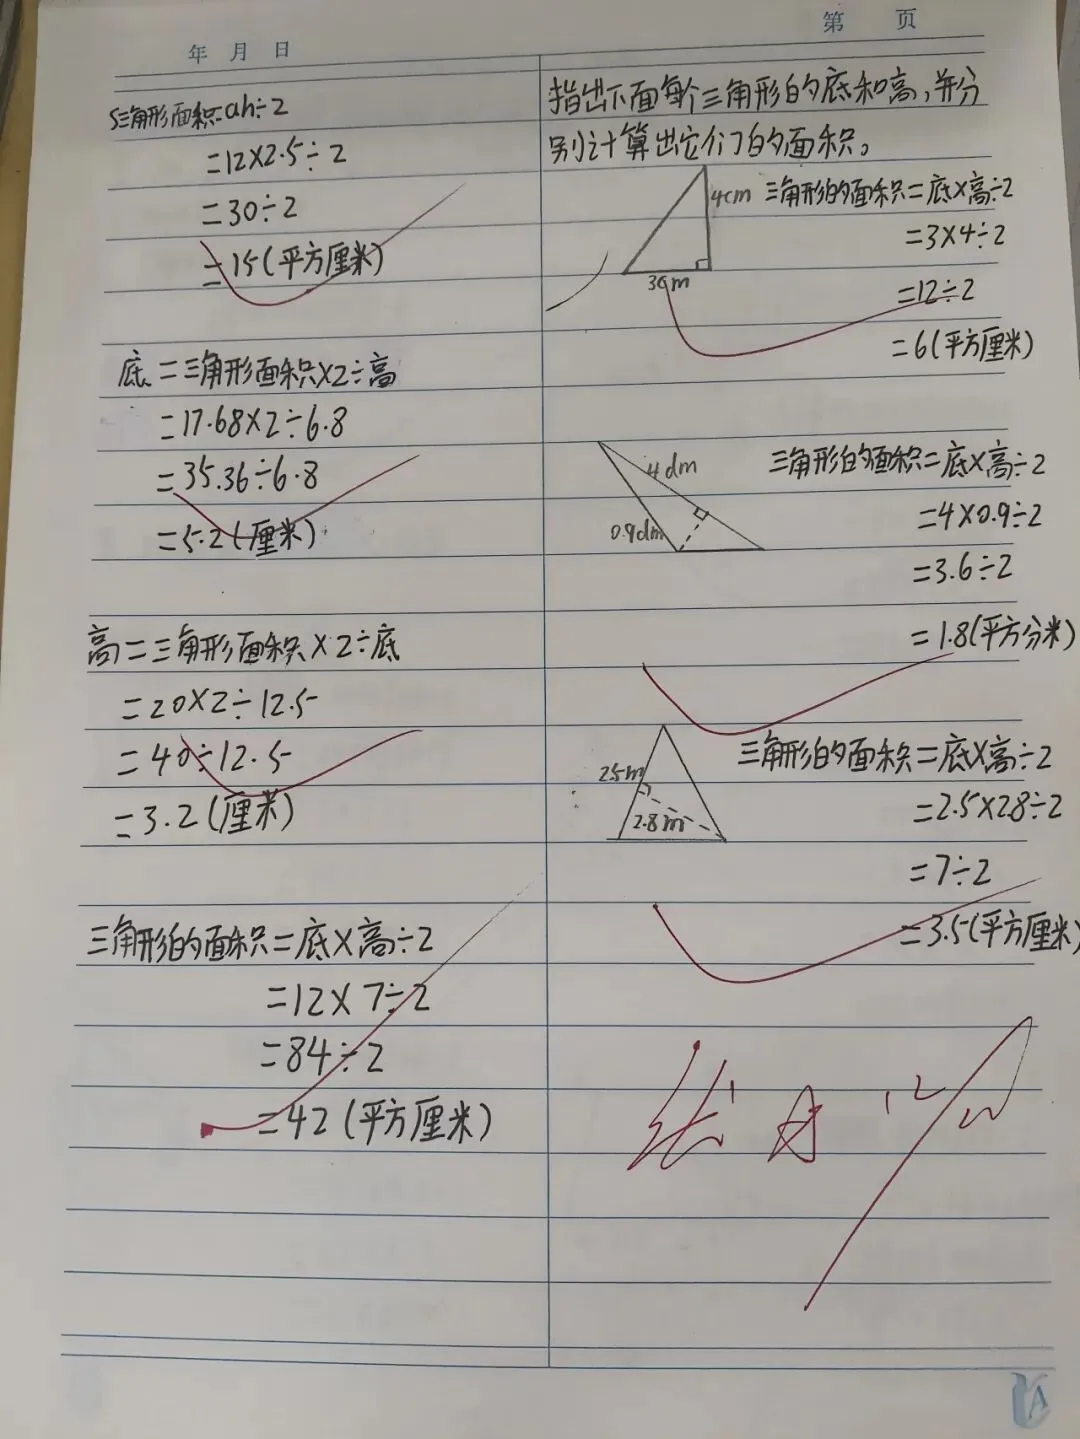 年 月 日
第 页
S三角形面积=ah÷2
=12×2.5÷2
=30÷2
=15(平方厘米)
底=三角形面积×2÷高
=17.68×2÷6.8
=35.36÷6.8
=5.2(厘米)
高=三角形面积×2÷底
=20×2÷12.5
=40÷12.5
=3.2(厘米)
三角形的面积=底×高÷2
=12×7÷2
=84÷2
=42(平方厘米)
指出下面每个三角形的底和高,并分
别计算出它们的面积。
4cm
3cm
三角形的面积=底×高÷2
=3×4÷2
=12÷2
=6(平方厘米)
4dm
0.9dm
三角形的面积=底×高÷2
=4×0.9÷2
=3.6÷2
=1.8(平方分米)
2.5m
2.8m
三角形的面积=底×高÷2
=2.5×2.8÷2
=7÷2
=3.5(平方厘米)
A